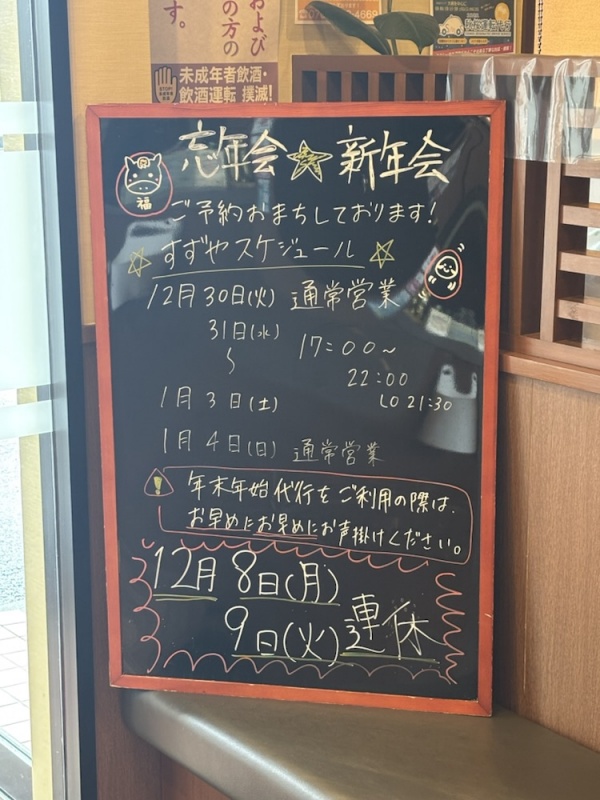 および
の方の
す。
4669
STOP
未成年者飲酒・
飲酒運転 撲滅!
忘年会☆新年会
福
ご予約おまちしております!
☆すずやスケジュール☆
12月30日(火) 通常営業
31日(水)
〜
17:00〜
22:00
LO 21:30
1月3日(土)
1月4日(日) 通常営業
! 年末年始代行をご利用の際は、
お早めにお早めにお声掛けください。
12月8日(月)
9日(火)連休